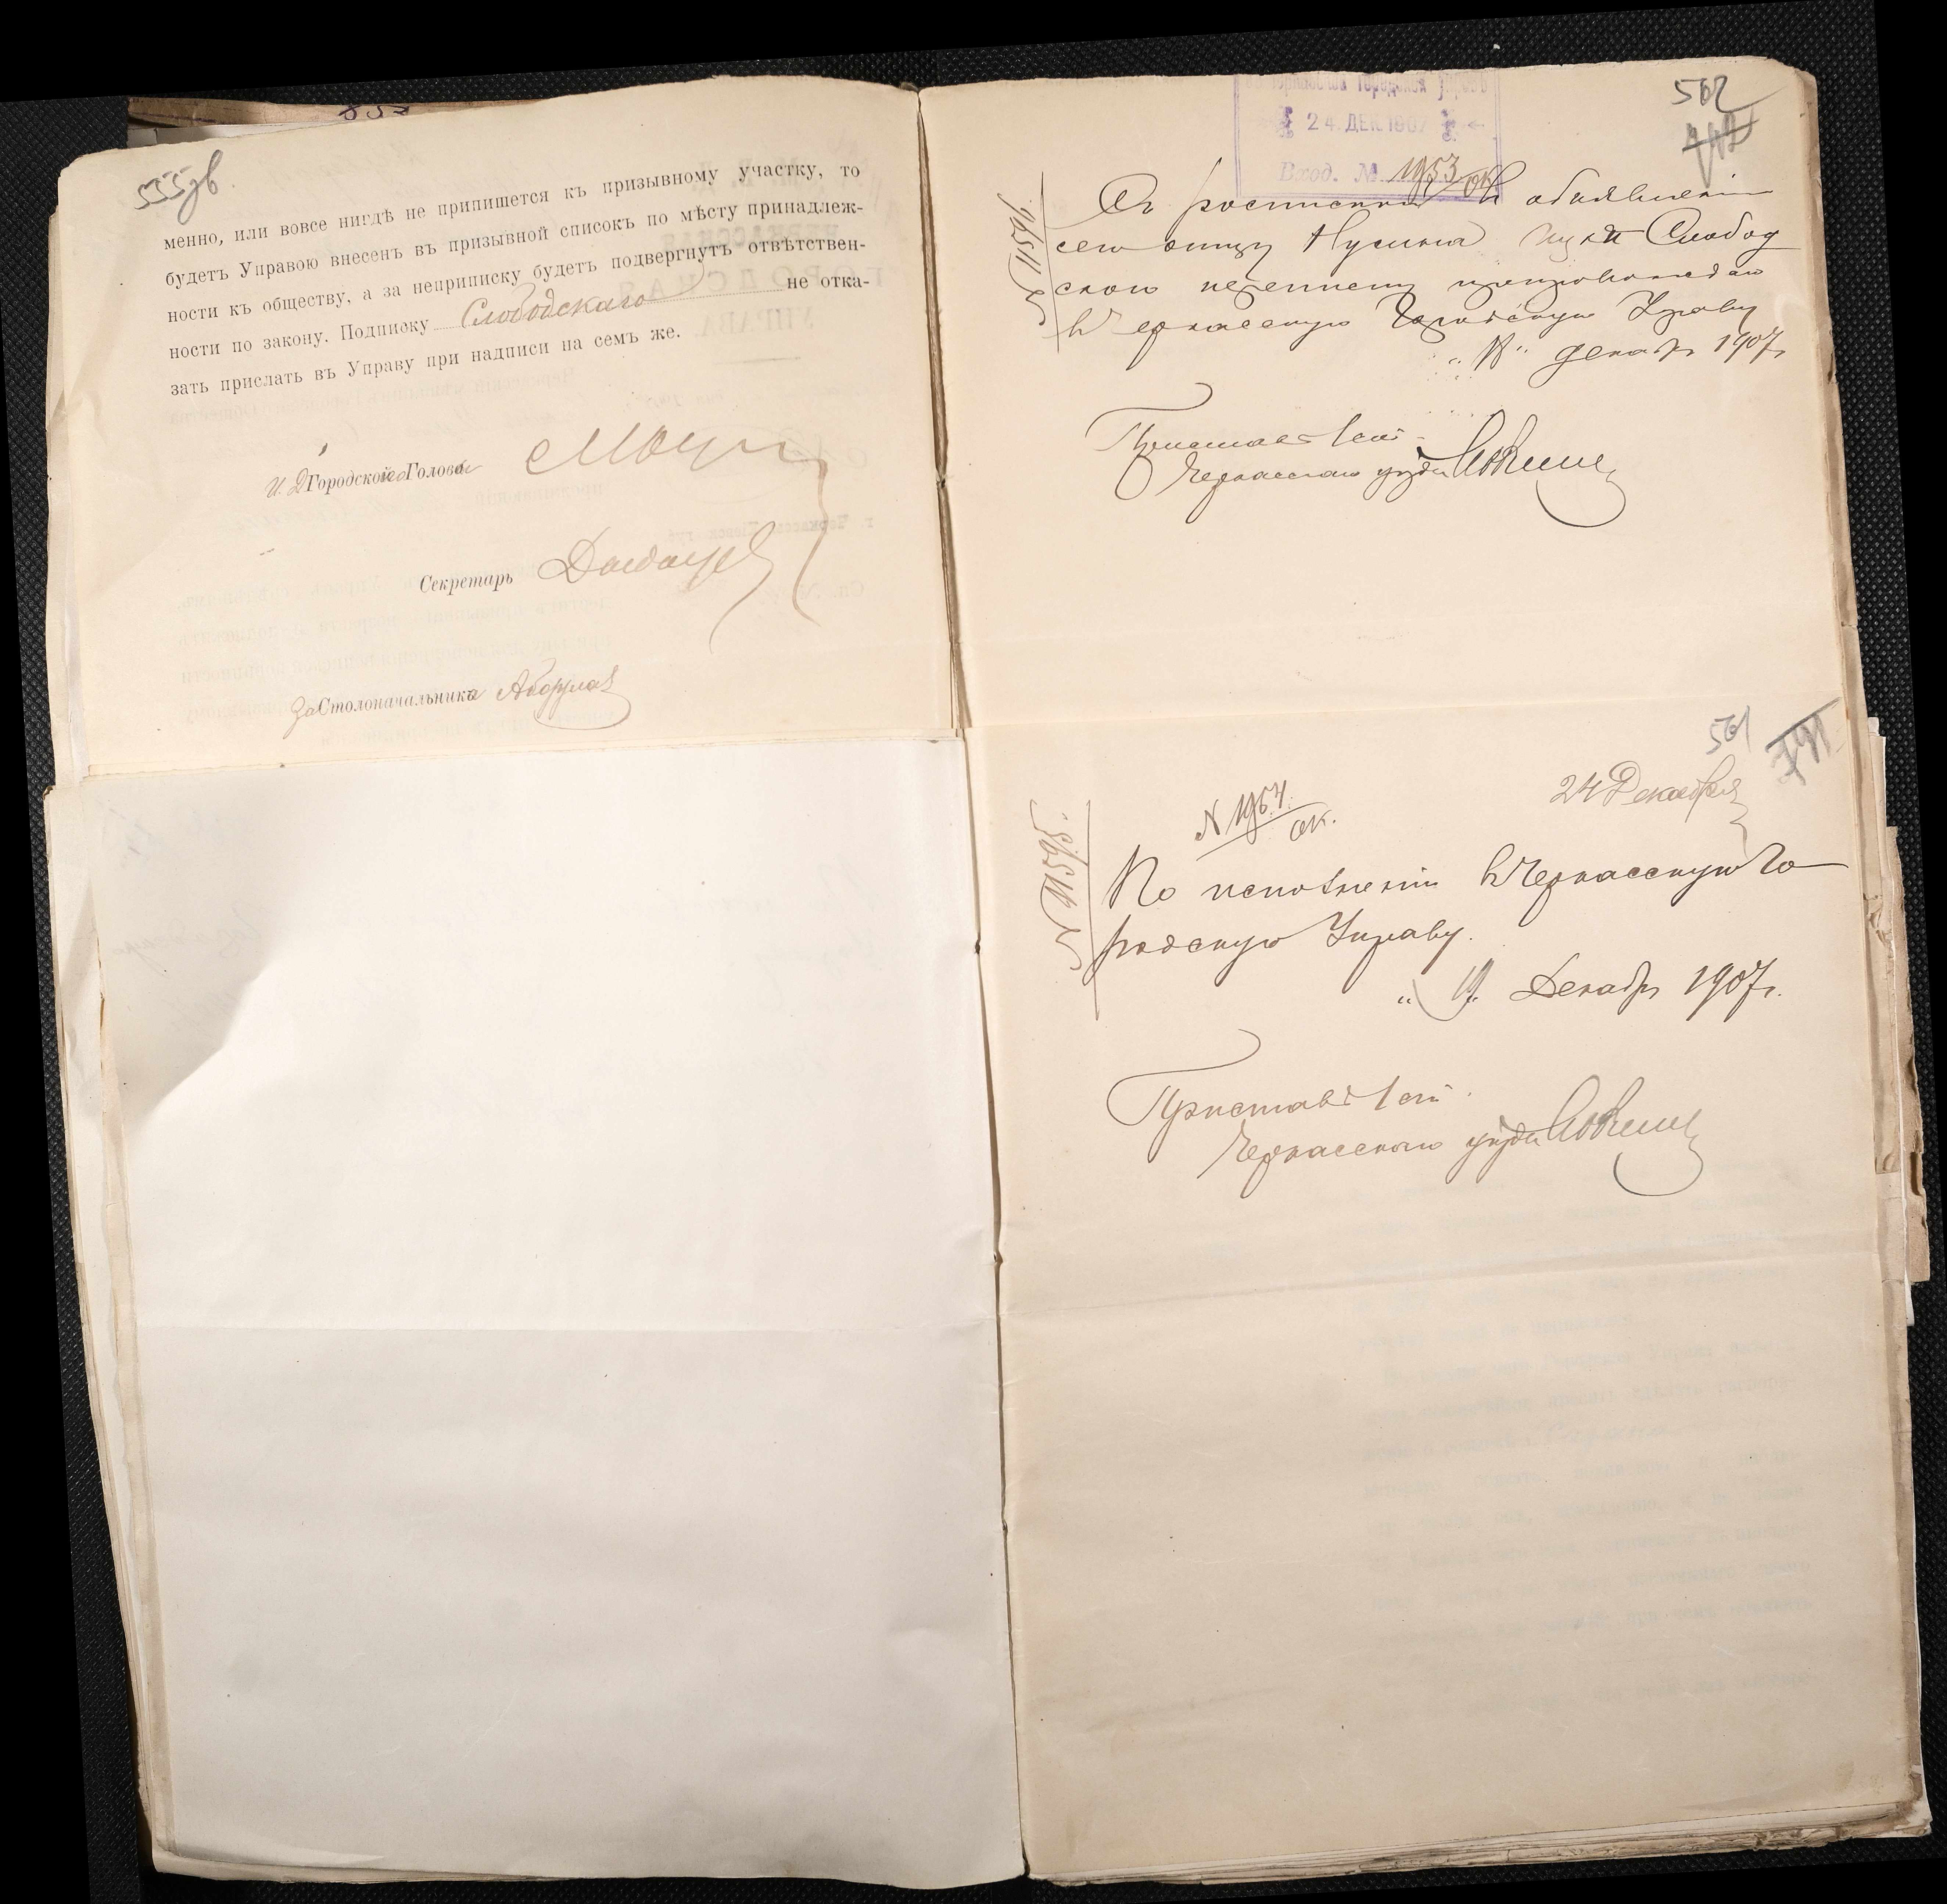 555 зв
менно, или вовсе нигдѣ не припишется къ призывному участку, то
будетъ Управою внесенъ въ призывной списокъ по мѣсту принадлеж-
ности къ обществу, а за неприписку будетъ подвергнутъ отвѣтствен-
ности по закону. Подписку Слободскаго не отка-
зать прислать въ Управу при надписи на семъ же.
И. Д. Городского Головы
Секретарь
За Столоначальника
502
24 ДЕК 1907
Вход. № 1953/ок
Съ роспискою въ объявленіи
сего отцу Нусина Слобод
скому препровождаю
въ Черкасскую Городскую Управу
"18" декабря 1907 г.
Приставъ 1 ст.
Черкасскаго уѣзда
501
24 Декабря
N 1954/ок.
По исполненіи въ Черкасскую Го
родскую Управу.
Декабря 1907 г.
Приставъ 1 ст.
Черкасскаго уѣзда